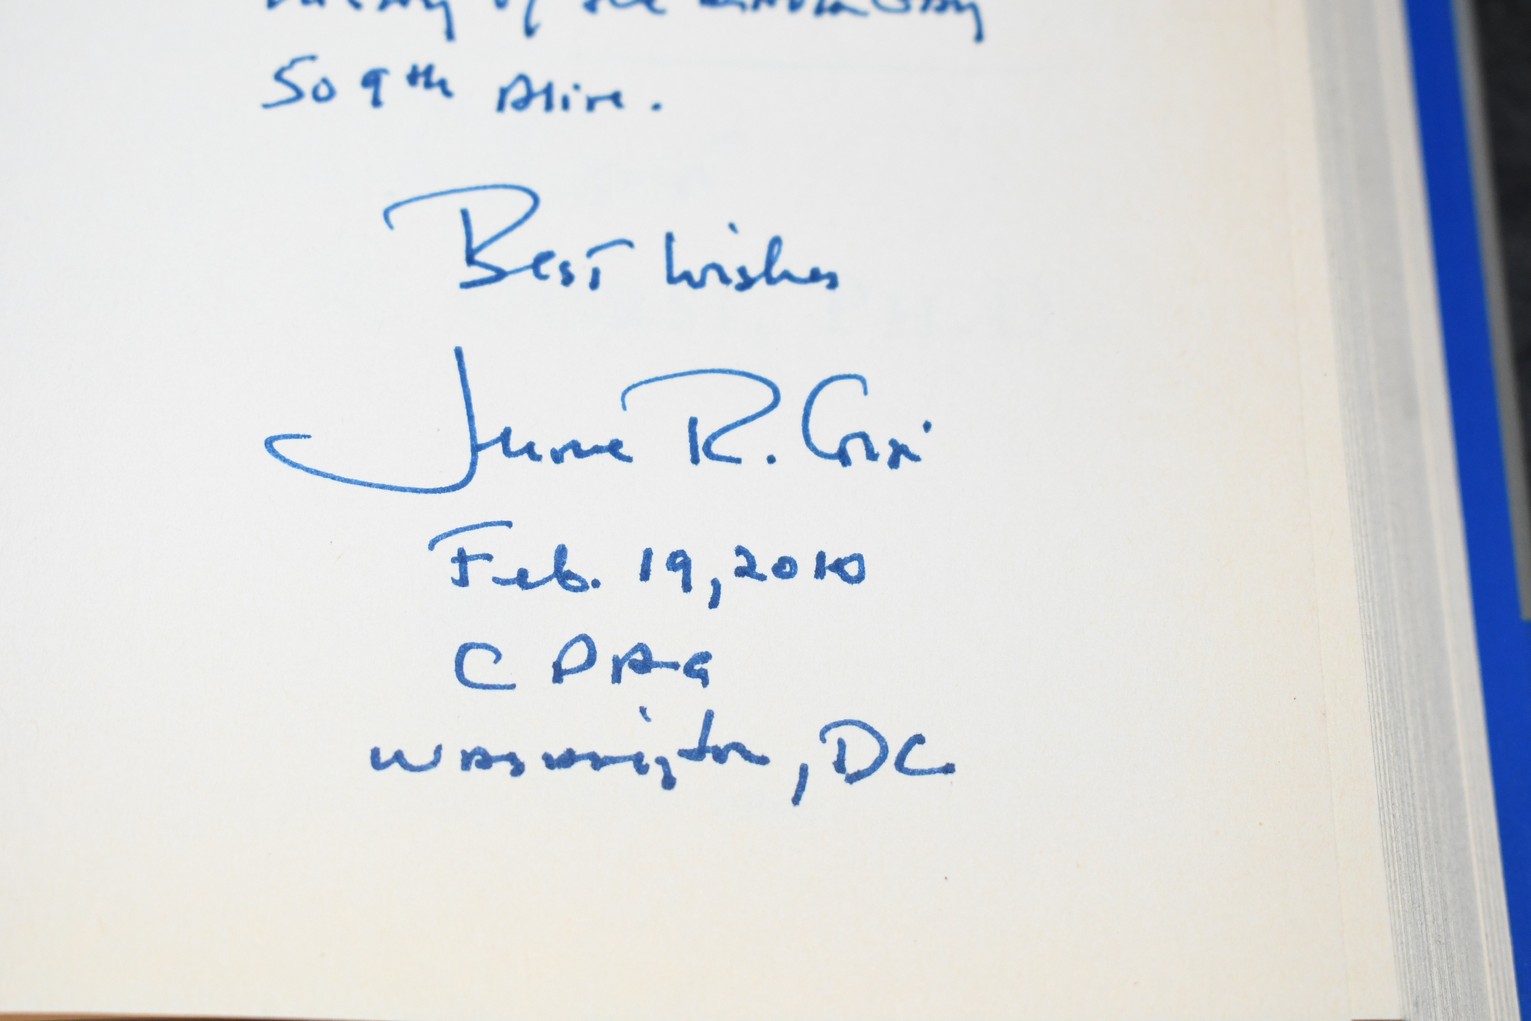 of the
509th Alive.
Best Wishes
Jerome R. Corsi
Feb. 19, 2010
CPAC
Washington, DC